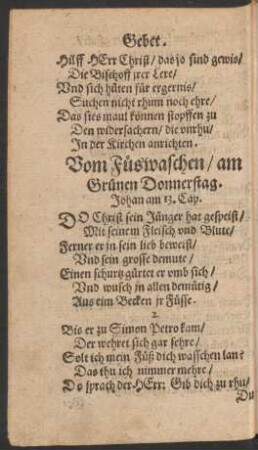 Gebet.
Hilff HErr Christ / das jo sind gewis /
Die Bischoff jrer Lere /
Vnd sich hüten für ergernis /
Suchen nicht rhum noch ehre /
Das sies maul können stopffen zu
Den widersachern / die vnrhu /
In der Kirchen anrichten.
Vom Füswaschen / am
Grünen Donnerstag.
Johan am 13. Cap.
DO Christ sein Jünger hat gespeist /
Mit seinem Fleisch vnd Blute /
Ferner er jn sein lieb beweist /
Vnd sein grosse demute /
Einen schurtz gürtet er vmb sich /
Vnd wusch jn allen demütig /
Aus eim Becken jr Füsse.
2.
Bis er zu Simon Petro kam /
Der wehret sich gar sehre /
Solt ich mein Füß dich wasschen lan?
Das thu ich nimmer mehre /
Do sprach der HErr: Gib dich zu rhu /
Du